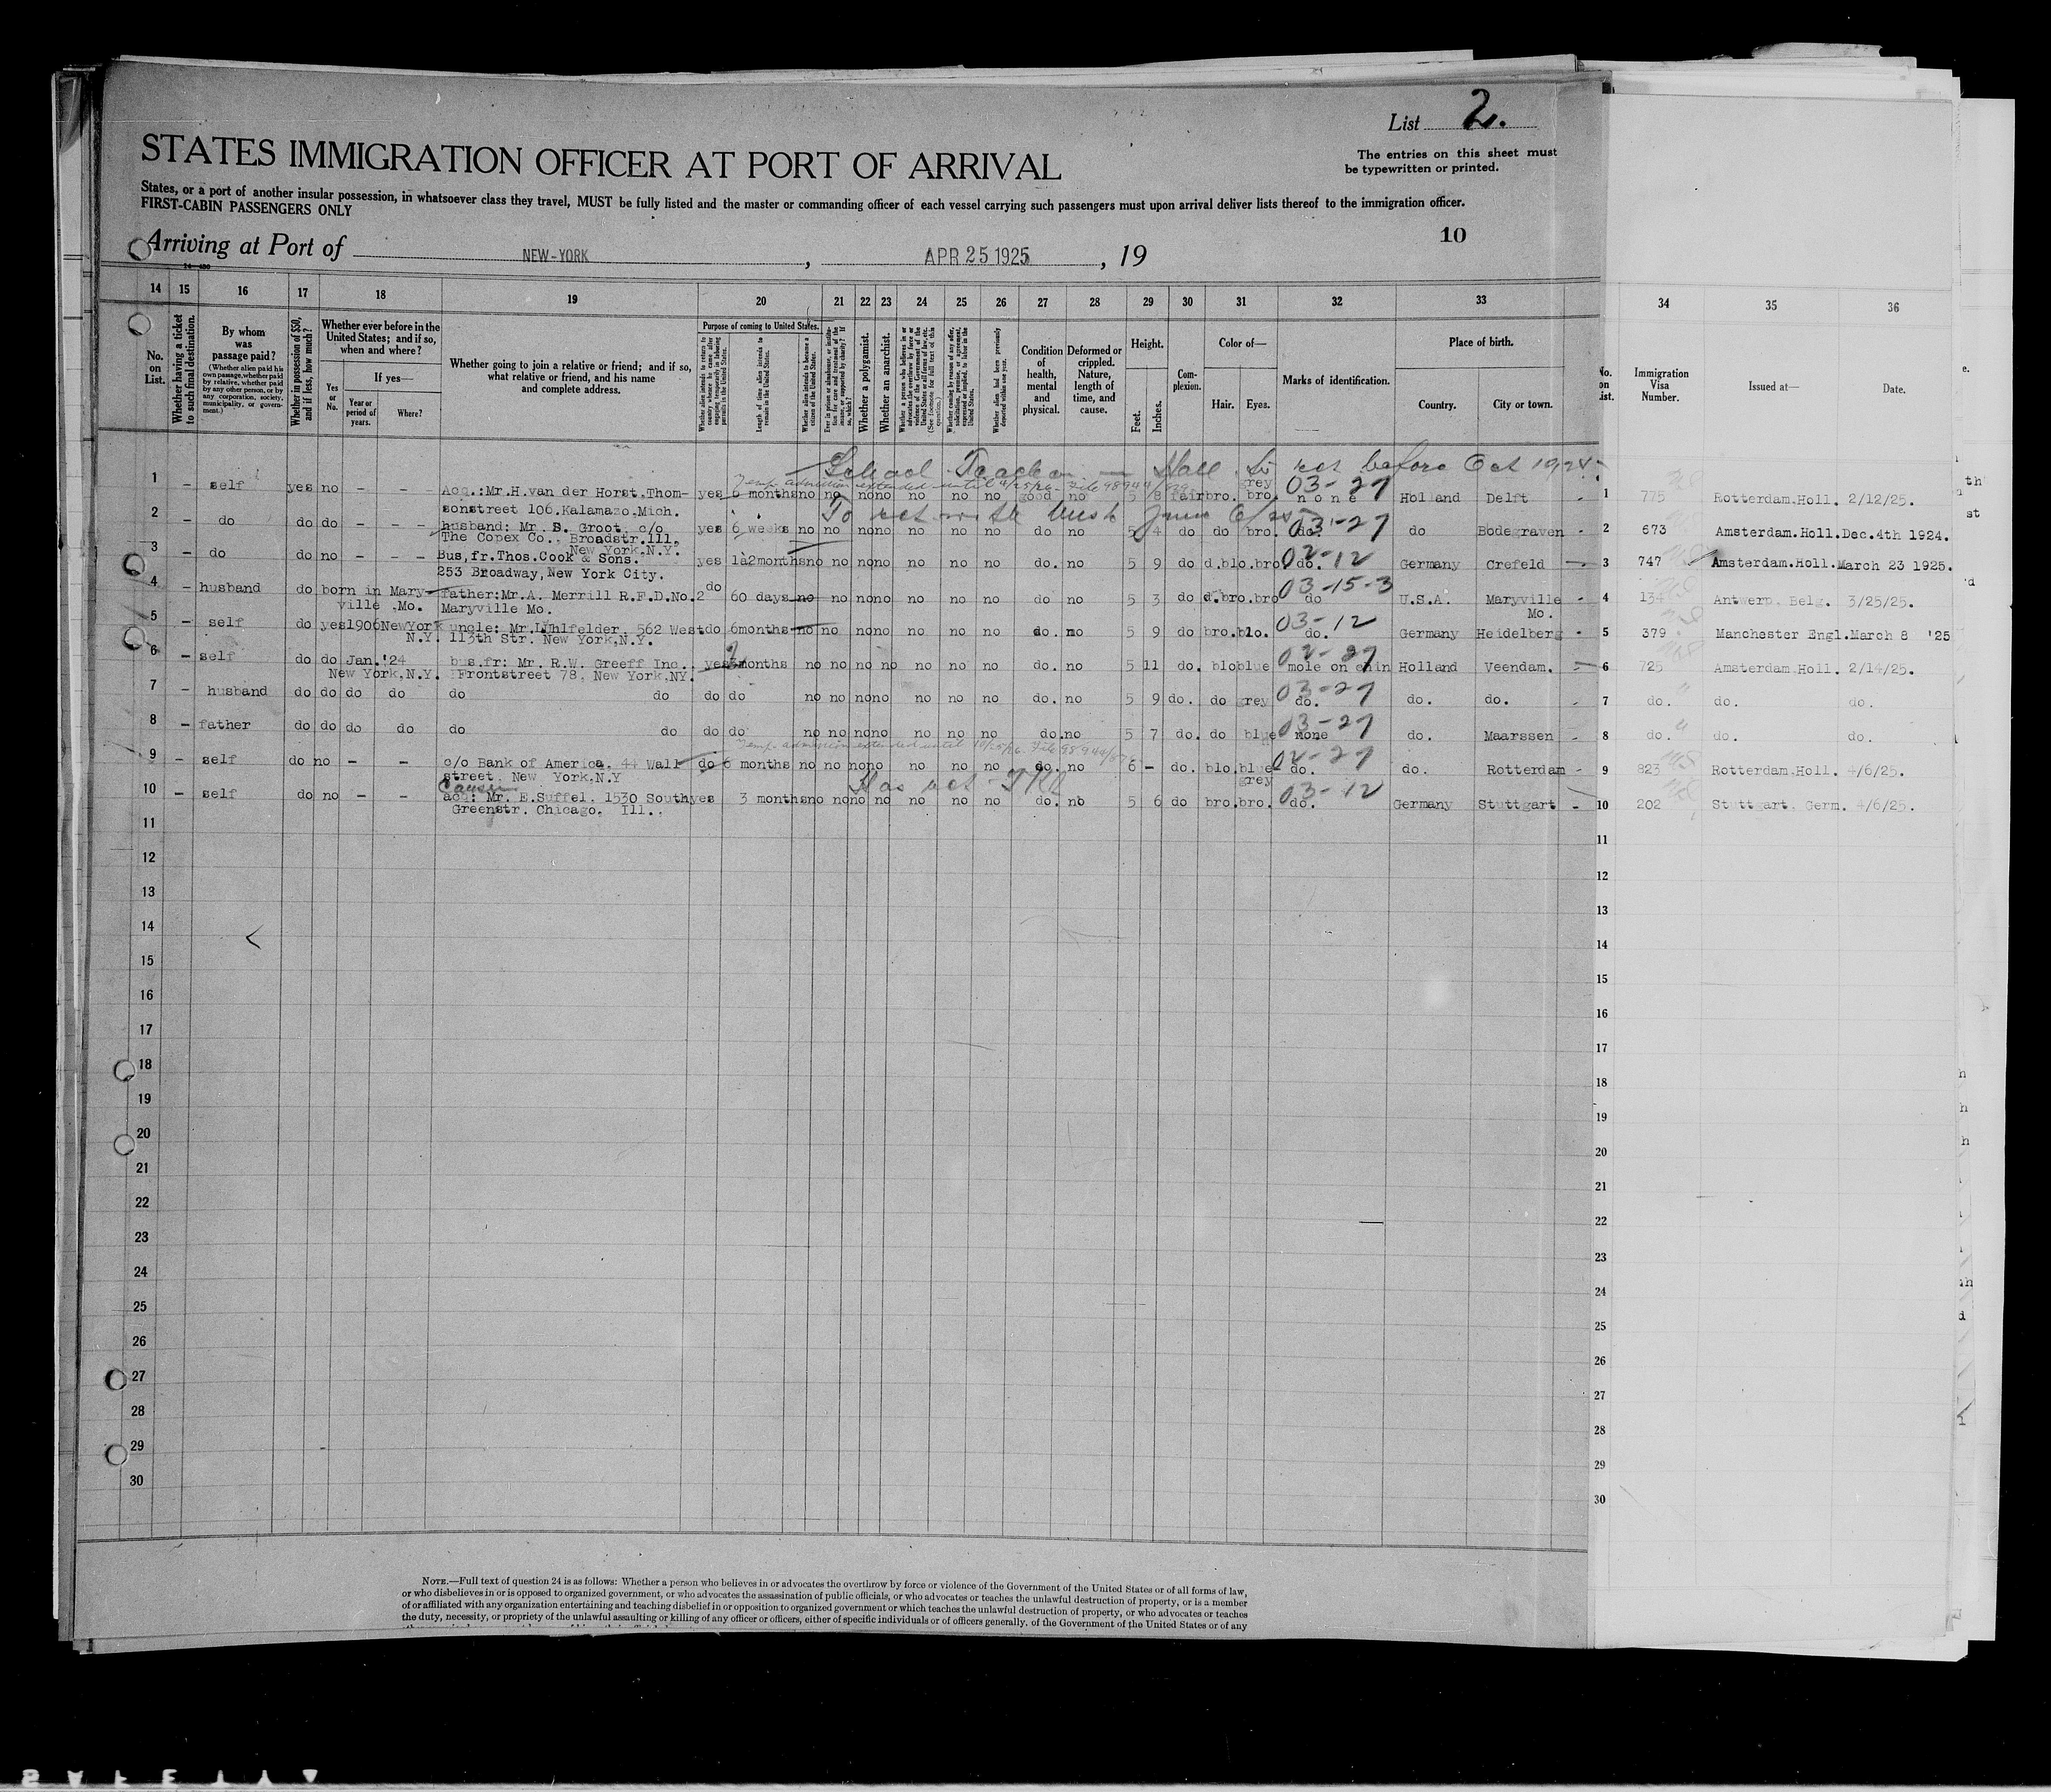 List 2.
STATES IMMIGRATION OFFICER AT PORT OF ARRIVAL
The entries on this sheet must
be typewritten or printed.
States, or a port of another insular possession, in whatsoever class they travel, MUST be fully listed and the master or commanding officer of each vessel carrying such passengers must upon arrival deliver lists thereof to the immigration officer.
FIRST-CABIN PASSENGERS ONLY
10
Arriving at Port of NEW-YORK, APR 25 1925, 19
14 15 16 17 18 19 20 21 22 23 24 25 26 27 28 29 30 31 32 33 34 35 36
No. on List.
Whether having a ticket to such final destination.
By whom was passage paid?
(Whether alien paid his own passage, whether paid by relative, whether paid by any other person, or by any corporation, society, municipality, or government.)
Whether in possession of $50, and if less, how much?
Whether ever before in the United States; and if so, when and where?
Yes or No.
If yes—
Year or period of years.
Where?
Whether going to join a relative or friend; and if so, what relative or friend, and his name and complete address.
Purpose of coming to United States.
Length of time alien intends to remain in the United States.
Whether alien intends to become a citizen of the United States.
Whether a polygamist.
Whether an anarchist.
Condition of health, mental and physical.
Deformed or crippled. Nature, length of time, and cause.
Height.
Feet.
Inches.
Complexion.
Color of—
Hair.
Eyes.
Marks of identification.
Place of birth.
Country.
City or town.
No. on List.
Immigration Visa Number.
Issued at—
Date.
School Teacher — Hall to ret before Oct 1925
Temp admission extended until 4/25/26 - File 98944/829
1 – self yes no – – – Acq.:Mr.H.van der Horst,Thom- yes 6 months no no no no no no no good no 5 8 fair bro. grey bro. none 03-27 Holland Delft – 1 775 Rotterdam.Holl. 2/12/25.
sonstreet 106.Kalamazo.Mich.
To ret with husb June 6/25
2 – do do do – – – husband: Mr. S. Groot, c/o yes 6 weeks no no no no no no no do no 5 4 do do bro. do. 03-27 do Bodegraven – 2 673 Amsterdam.Holl.Dec.4th 1924.
The Copex Co., Broadstr.111,
New York.N.Y.
3 – do do no – – – Bus,fr.Thos.Cook & Sons. yes 1à2months no no no no no no no do. no 5 9 do d.blo.bro do. 02-12 Germany Crefeld – 3 747 Amsterdam.Holl.March 23 1925.
253 Broadway,New York City.
4 – husband do born in Mary- father:Mr.A. Merrill R.F.D.No.2 do 60 days no no no no no no no do no 5 3 do d.bro.bro do 03-15-3 U.S.A. Maryville – 4 134 Antwerp. Belg. 3/25/25.
ville ,Mo. Maryville Mo. Mo.
5 – self do yes 1906 NewYork uncle: Mr.L.Uhlfelder, 562 West do 6months no no no no no no no do. no 5 9 do bro.blo. do. 03-12 Germany Heidelberg – 5 379 Manchester Engl.March 8 '25
N.Y. 113th Str. New York,N.Y.
6 – self do do Jan.'24 bus.fr: Mr. R.W. Greeff Inc. yes 2 months no no no no no no no do. no 5 11 do. blo blue mole on chin 02-27 Holland Veendam. – 6 725 Amsterdam.Holl. 2/14/25.
New York,N.Y. Frontstreet 78, New York,NY.
7 – husband do do do do do do do do no no no no no no no do. no 5 9 do. do grey do. 03-27 do. do. – 7 do. do. do.
8 – father do do do do do do do do no no no no no no no do. no 5 7 do. do blue none 03-27 do. Maarssen – 8 do. do. do.
Temp. admission extended until 10/25/26. File 98944/
9 – self do no – – c/o Bank of America, 44 Wall do 6 months no no no no no no no do. no 6 – do. blo. blue- grey do. 02-27 do. Rotterdam – 9 823 Rotterdam.Holl. 4/6/25.
street, New York,N.Y
Has ret
Cousin
10 – self do no – – acq: Mr. E.Suffel, 1530 South yes 3 months no no no no no no no do. no 5 6 do bro.bro. do. 03-12 Germany Stuttgart – 10 202 Stuttgart, Germ. 4/6/25.
Greenstr. Chicago, Ill..
11 11
12 12
13 13
14 14
15 15
16 16
17 17
18 18
19 19
20 20
21 21
22 22
23 23
24 24
25 25
26 26
27 27
28 28
29 29
30 30
NOTE.—Full text of question 24 is as follows: Whether a person who believes in or advocates the overthrow by force or violence of the Government of the United States or of all forms of law,
or who disbelieves in or is opposed to organized government, or who advocates the assassination of public officials, or who advocates or teaches the unlawful destruction of property, or is a member
of or affiliated with any organization entertaining and teaching disbelief in or opposition to organized government or which teaches the unlawful destruction of property, or who advocates or teaches
the duty, necessity, or propriety of the unlawful assaulting or killing of any officer or officers, either of specific individuals or of officers generally, of the Government of the United States or of any